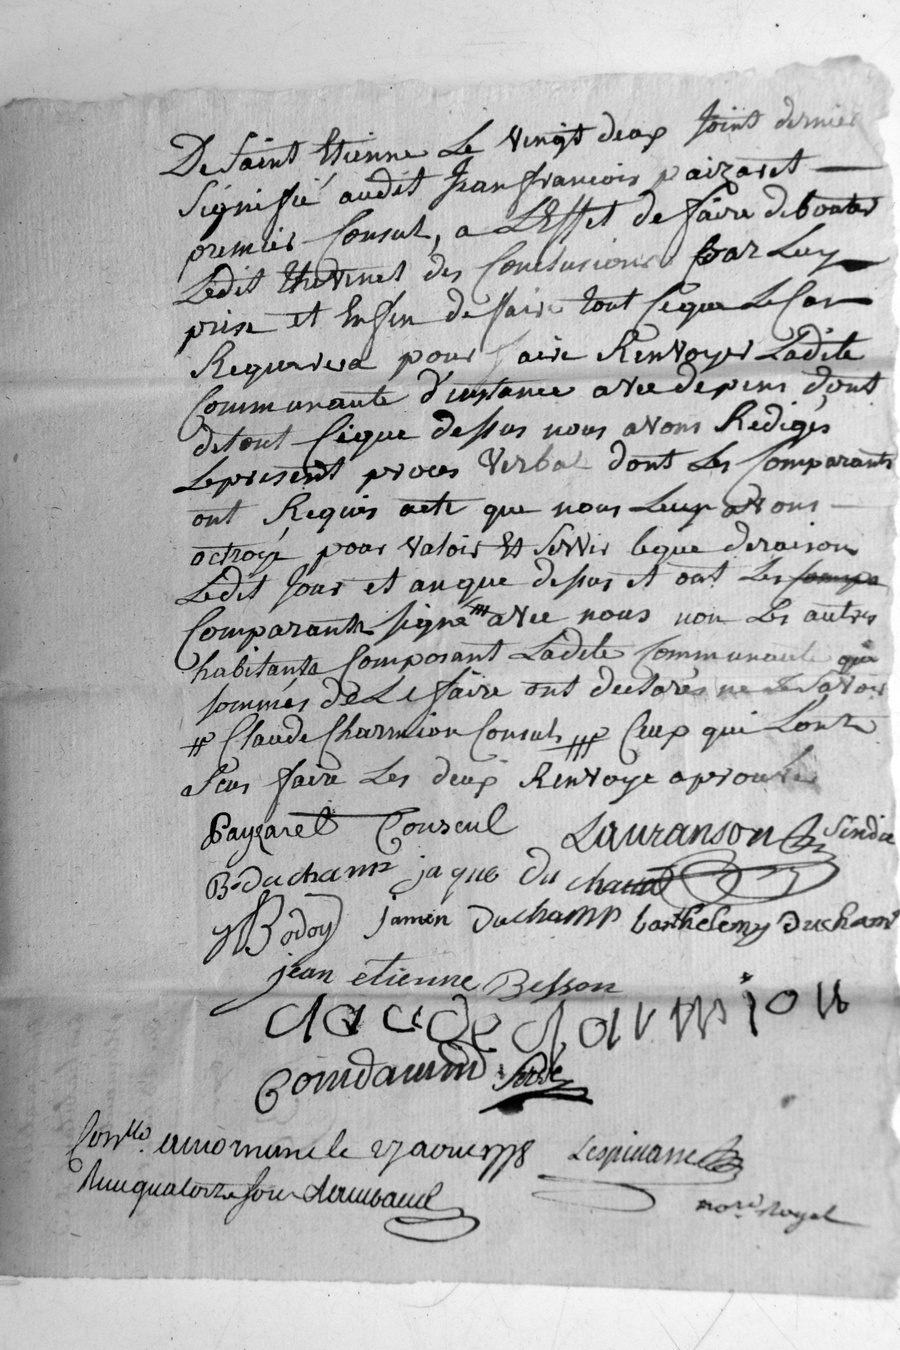 De Saint Etienne Le vingt deux Joint dernier
Signifié audit Jean francois paizaret
premier Consul, a L'Effet de faire debouter
Ledit thevenet des Conclusions par Luy
prise et Enfin de faire tout Ceque Le Cas
Requerera pour faire Renvoyer Ladite
Communauté d'instance avec depens dont
detout Ceque dessus nous avons Redigés
Lepresent proces Verbal dont Les Comparants
ont Requis acte que nous Leur avons
octroyé pour valoir Et Servir ceque deraison
Ledit Jour et an que dessus et ont Les compa
Comparants signé avec nous non Les autres
habitants Composant Ladite Communauté qui
sommés de Le faire ont declarés ne Savoir
# Claude Charmion Consul # Ceux qui L'ont
Sceu faire Les deux Renvoye aprouvé
Payzaret Conseul Lauranson Sindic
B. duchamp jaque du chanp
Bodoy jamen duchamp barthelemy ducham
jean etienne Besson
claude charmion
Coindaumd
Conllé. le 27 aout 1778 Lespinasse
quatorze sous notre. Royal